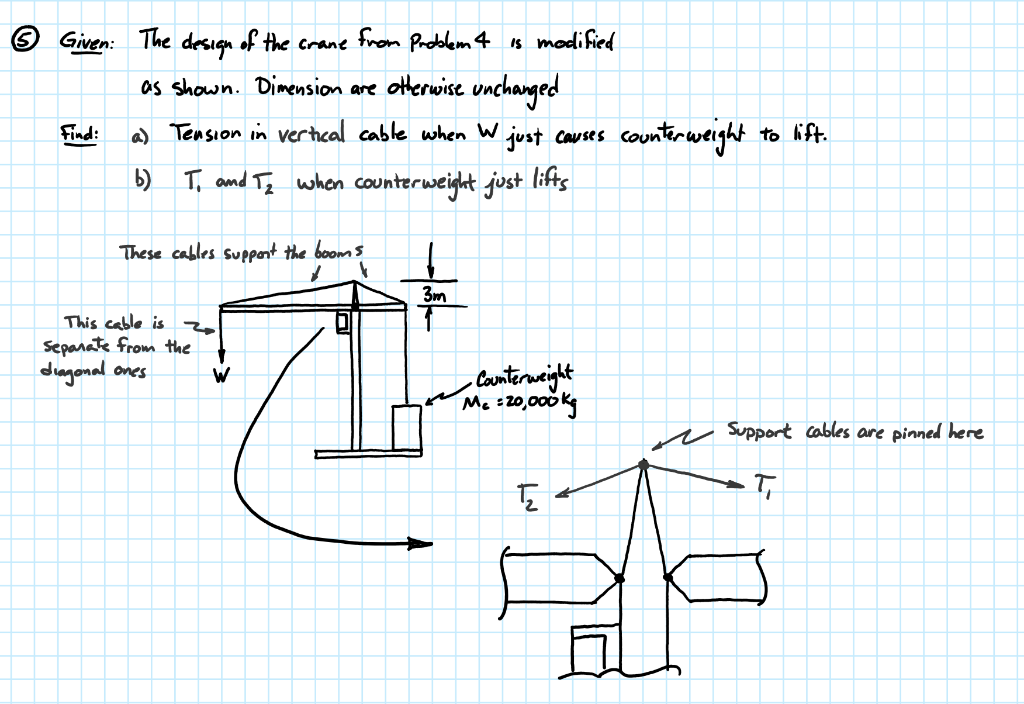 ⑤ Given: The design of the crane from Problem 4 is modified
as shown. Dimension are otherwise unchanged
Find: a) Tension in vertical cable when W just causes counterweight to lift.
b) T₁ and T₂ when counterweight just lifts
These cables support the booms
3m
This cable is
separate from the
diagonal ones
W
Counterweight
Mc = 20,000 kg
Support cables are pinned here
T₂
T₁